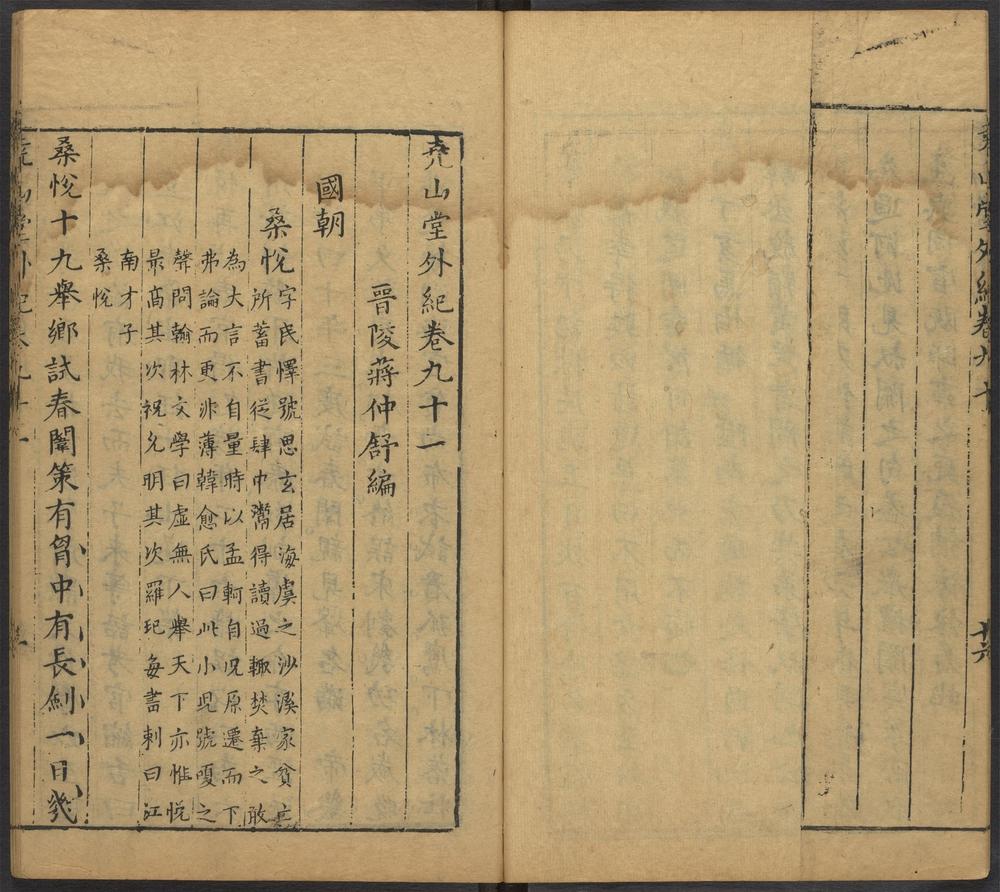 尭山堂外紀卷九十一
晉陵蔣仲舒編
國朝
桑悅
字民懌號思玄居海虞之沙溪家貧亡
所蓄書從肆中鬻得讀過輙焚棄之敢
為大言不自量時以孟軻自况原遷而下
弗論而更非薄韓愈氏曰此小兒號嗄之
聲問翰林文學曰虛無人舉天下亦惟悅
最髙其次祝允明其次羅玘每書刺曰江
南才子
桑悅
桑悅十九舉鄉試春闈策有胷中有長劍一日幾
外紀卷九十
十六